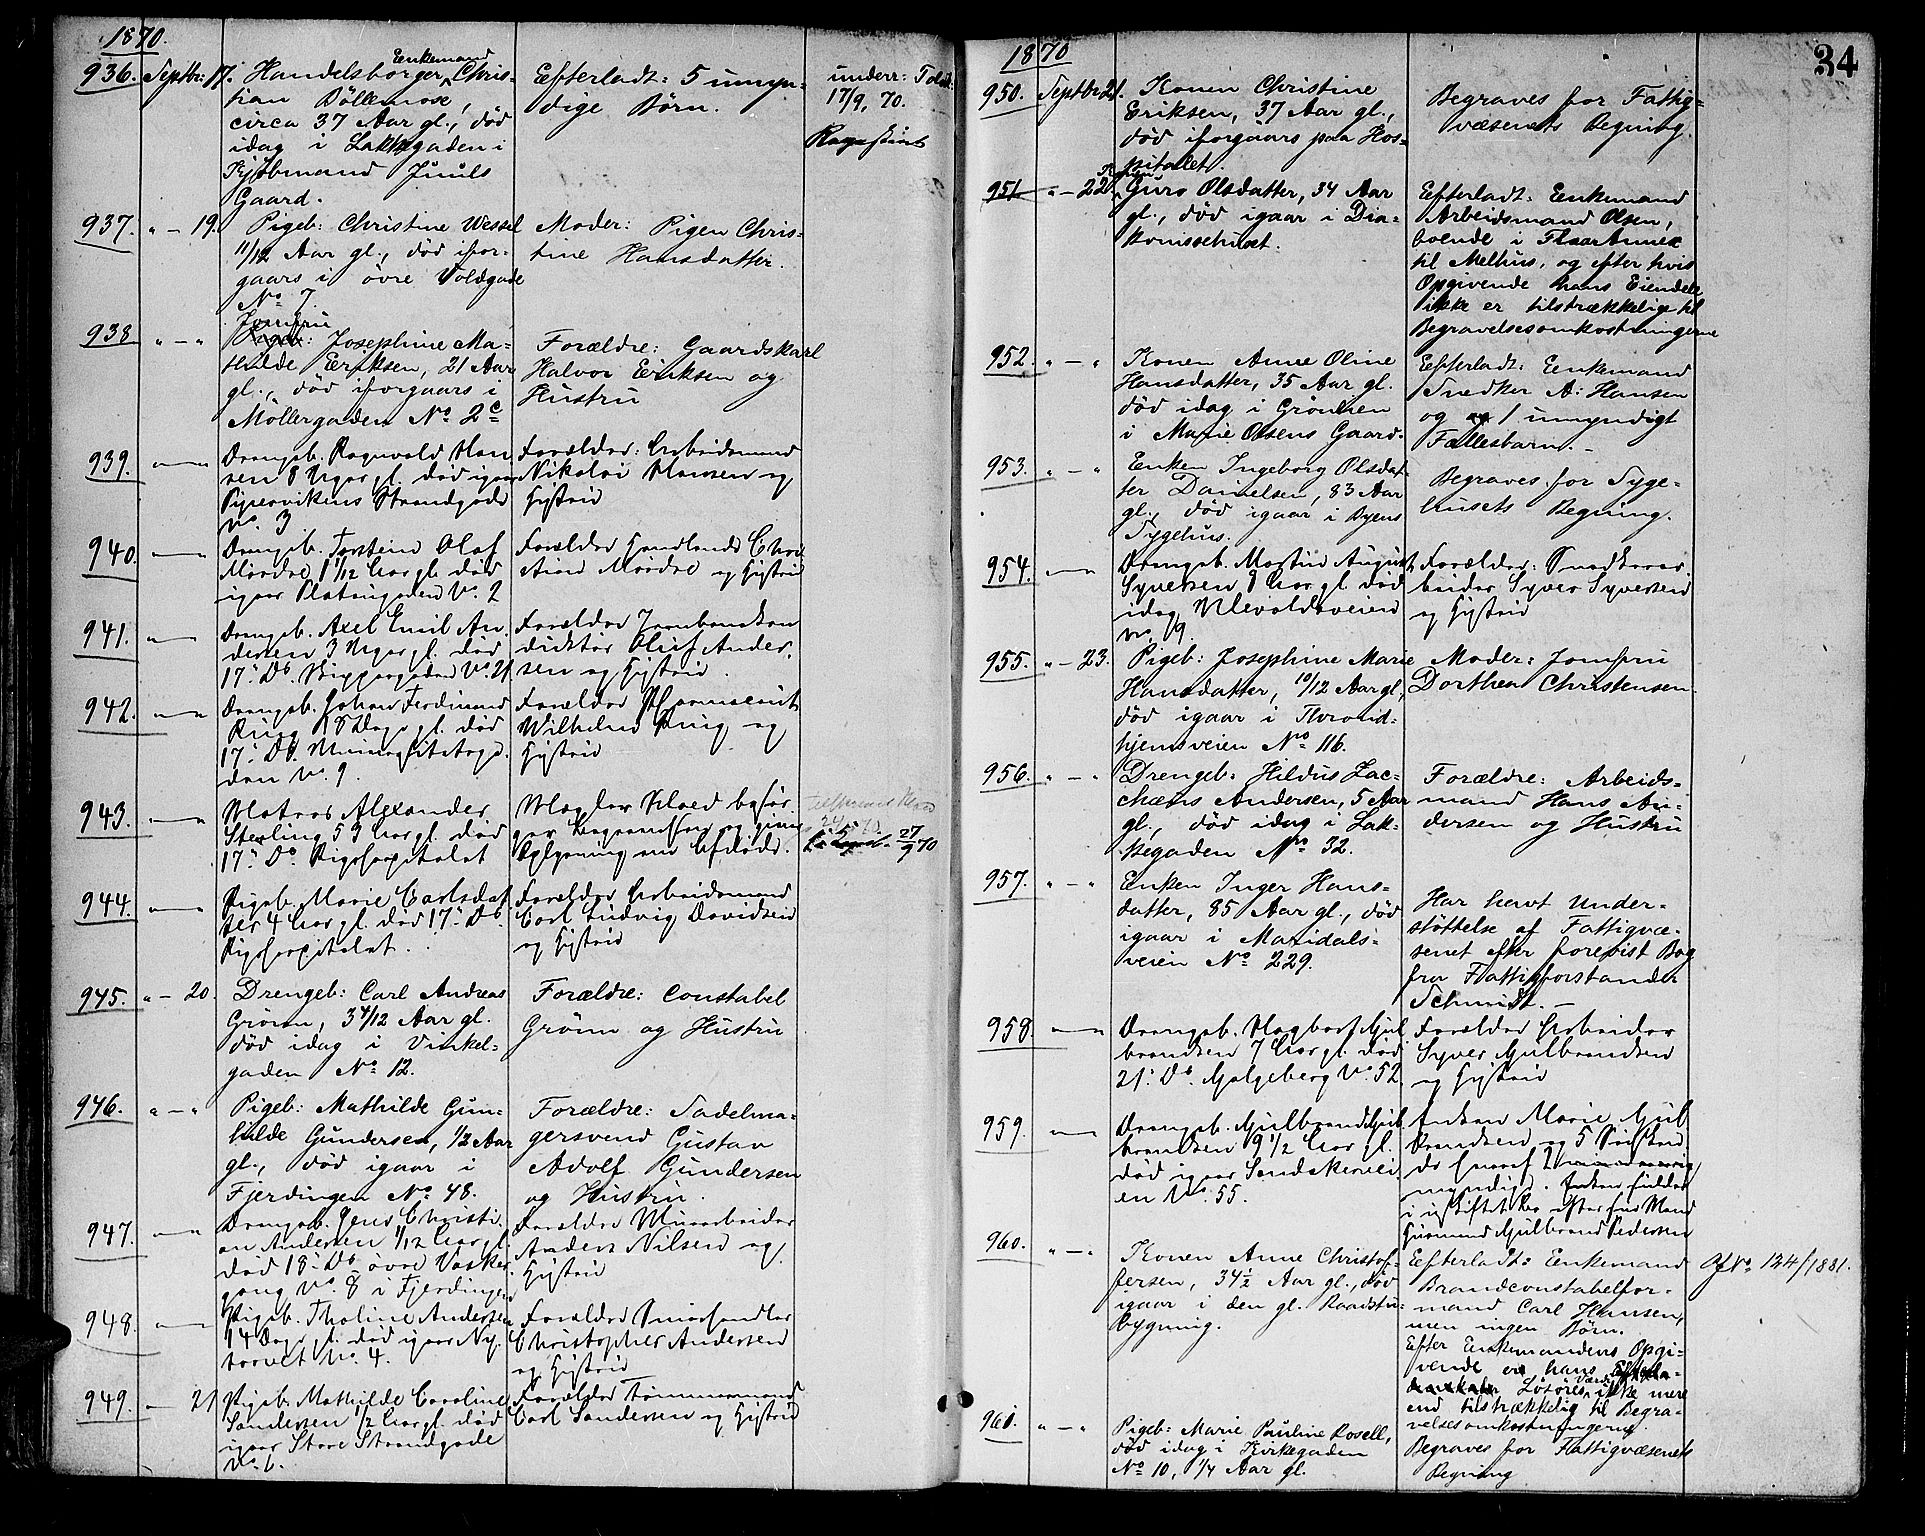 1870.
936. Septbr: 17. Handelsborger, Enkemand Chris-
tian Böllemose,
circa 37 Aar gl., död
idag i Lakkegaden i
Kjöbmand Juuls
Gaard.
Efterladt: 5 umyn-
dige Börn.
underr:
17/9, 70.
937. " - 19. Pigeb: Christine Wessel
11/12 Aar gl., död ifor-
gaars i övre Voldgade
No 7.
Moder: Pigen Chris-
tine Hansdatter.
938 " - " Jomfru
Josephine Ma-
thilde Eriksen, 21 Aar
gl., död iforgaars i
Möllergaden No 2c
Forældre: Gaardskarl
Halvor Eriksen og
Hustru
939. Drengeb. Ragnvald Han
sen 8 Uger gl. död igaar
Pipervikens Strandgade
No. 3
Forældre: Arbeidsmand
Nikolai Hansen og
Hustru
940. Drengeb. Torstein Olaf
Mordre, 1 1/12 Aar gl. död
igaar Platougaden No. 2
Forældre Handlende Chri
stian Mordre og Hustru
941. Drengeb. Axel Emil An
dersen 3 Uger gl. död
17. Ds. Briggergaden No. 21
Forældre Jernbanekon
duktör Oluf Ander
sen og Hustru.
942. Drengeb. Johan Ferdinand
Ruig 18 Dage gl. död
17. Ds. Munregitetsga
den No. 9.
Forældre
Wilhelm Ruig og
Hustru
943. Matros Alexander
Sterling 53 Aar gl. död
17. Ds. Rigshospitalet
Mægler Kloed besör
ger Begravelsen og giver
Oplysning om Afdöde.
27/9 70
944. Pigeb. Marie Carlsdat
ter 4 Aar gl. död 17. Ds.
Rigshospitalet.
Forældre Arbeidsmand
Carl Ludvig Davidsen
og Hustru
945. " - 20. Drengeb: Carl Andreas
Grönn, 3 4/12 Aar gl.
död idag i Vinkel-
gaden No 12.
Forældre: Constabel
Grönn og Hustru
946. " - " Pigeb: Mathilde Gun-
hilde Gundersen, 1/2 Aar
gl., död igaar i
Fjerdingen No 48.
Forældre: Sadelma-
gersvend Gustav
Adolf Gundersen
og Hustru.
947. Drengeb. Jens Christi
an Andersen 1/12 Aar gl.
död 18. Ds. övre Vasker
gang No. 8 i Fjerdingen
Forældre Murarbeider
Anders Nilsen og
Hustru
948. Pigeb. Tholine Andersen
14 Dage gl. död igaar Ny
torvet No. 4.
Forældre Smörhandler
Christopher Andersen
og Hustru
949. - 21 Pigeb. Mathilde Caroline
Sandersen 1/2 Aar gl. död
igaar Store Strandgade
No. 6.
Forældre Tömmermand
Carl Sandersen og Hustru
34
1870
950. Septbr 21. Konen Christine
Eriksen, 37 Aar gl.,
död iforgaars paa Hos-
pitalet.
Begraves for Fattig-
væsenets Regning.
951 " - 22. Konen Guro Olsdatter, 34 Aar
gl., död igaar i Dia-
konissehuset.
Efterladt: Enkemand
Arbeidsmand Olsen,
boende i Flaa Annex
til Melhus, og efter hvis
Opgivende hans Eiendele
ikke er tilstrækkelige til
Begravelsesomkostningerne
952. " - " Konen Anne Oline
Hansdatter, 35 Aar gl.
död idag i Grönlien
i Marie Olsens Gaard.
Efterladt: Enkemand
Snedker A: Hansen
og 1 umyndigt
Fællesbarn. -
953. " - " Enken Ingeborg Olsdat-
ter Danielsen, 83 Aar
gl., död igaar i Byens
Sygehus.
Begraves for Syge-
husets Regning.
954. Drengeb. Martin August
Syversen 8 Aar gl. död
idag Ullevoldsveien
No. 19.
Forældre: Snedkerar
beider Syver Syversen
og Hustru
955. " - 23. Pigeb: Josephine Marie
Hansdatter, 10/12 Aar gl.,
död igaar i Thrond-
hjemsveien No 116.
Moder: Jomfru
Dorthea Christensen.
956. " - " Drengeb: Hildus Zac-
chæus Andersen, 5 Aar
gl., död idag i Lak-
kegaden No 32.
Forældre: Arbeids-
mand Hans An-
dersen og Hustru
957. " - " Enken Inger Hans-
datter, 85 Aar gl., död
igaar i Maridals-
veien No 229.
Har havt Under-
stöttelse af Fattigvæ-
senet efter forevist Bog
fra Fattigforstander
Schmidt. -
958. Drengeb. Hagbart Gul
brandsen 7 Aar gl. död
21. Ds. Galgeberg No. 52
Forældre Arbeider
Syver Gulbrandsen
og Hustru
959. Drengeb. Gulbrand Gul
brandsen 9 1/2 Aar gl.
död igaar Sandakervei
en No. 55.
Enken Marie Gul
brandsen og 5 Södsken
de hvoraf 2
myndige. Enken sidder
i uskiftet Bo efter sin Mand
Gulbrand Pedersen
960. " - " Konen Anne Christof-
fersen, 34 1/2 Aar gl., död
igaar i den gl. Raadstu-
bygning.
Efterladt: Enkemand
Brandconstabelfor-
mand Carl Hansen,
men ingen Börn.
Efter Enkemandens Opgi-
vende er hans
Lösöres Værdi ikke mere
end tilstrækkelig til Begra-
velsesomkostningerne.
Cf No. 134/1881.
961. " - " Pigeb: Marie Pauline Rosell,
död idag i Kirkegaden
No 10, 1/4 Aar gl.
Begraves for Fattigvæsenets
Regning